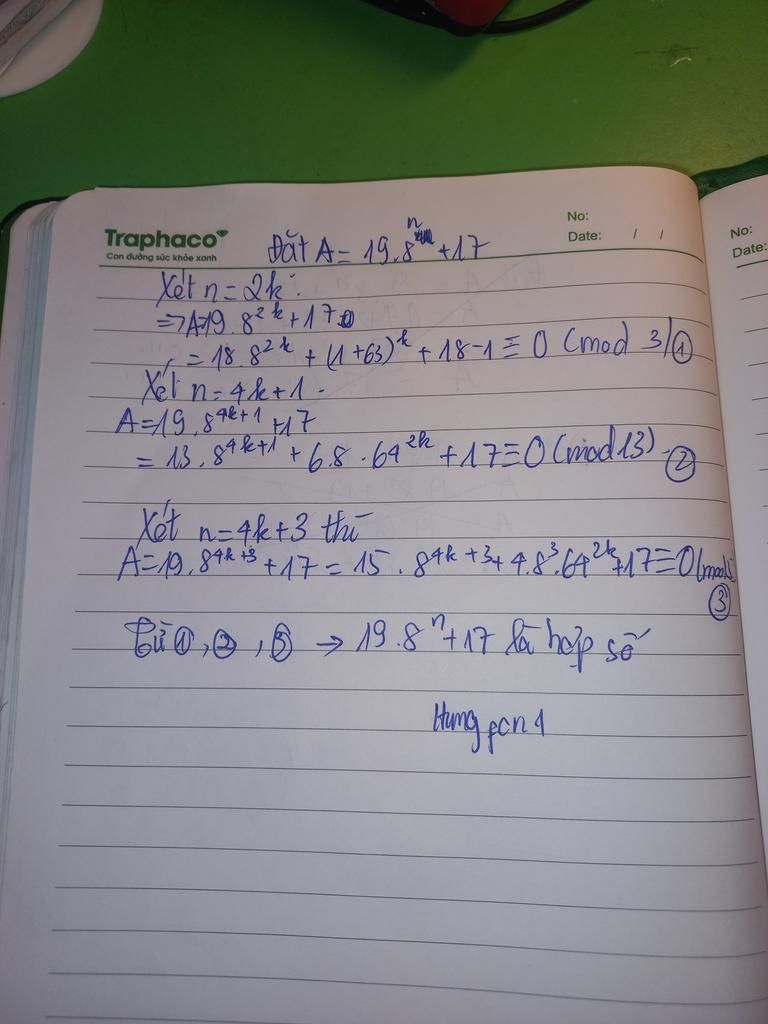 No:
Traphaco
Date: / /
Con đường sức khỏe xanh
Đặt A = 19.8^n + 17
Xét n = 2k:
=> A=19.8^{2k} + 17
= 18.8^{2k} + (1+63)^k + 18-1 ≡ 0 (mod 3) ①
Xét n = 4k+1.
A = 19.8^{4k+1} + 17
= 13.8^{4k+1} + 6.8.64^{2k} + 17 ≡ 0 (mod 13) ②
Xét n = 4k+3 thì
A = 19.8^{4k+3} + 17 = 15.8^{4k+3} + 4.8^3.64^{2k} + 17 ≡ 0 (mod 5
③
Từ ①, ②, ③ → 19.8^n + 17 là hợp số
No:
Date: